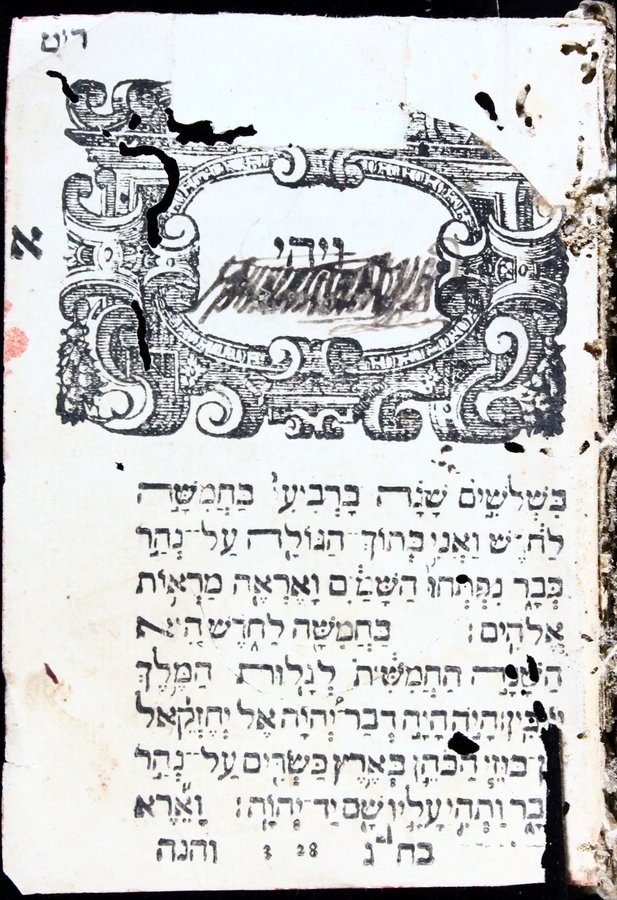 ריט
א
ויהי
בִּשְׁלֹשִׁים שָׁנָה בָּרְבִיעִי בַּחֲמִשָּׁה
לַחֹדֶשׁ וַאֲנִי בְתוֹךְ־הַגּוֹלָה עַל־נְהַר
כְּבָר נִפְתְּחוּ הַשָּׁמַיִם וָאֶרְאֶה מַרְאוֹת
אֱלֹהִים׃ בַּחֲמִשָּׁה לַחֹדֶשׁ הִיא
הַשָּׁנָה הַחֲמִשִׁית לְגָלוּת הַמֶּלֶךְ
הָיֹה הָיָה דְבַר־יְהוָה אֶל יְחֶזְקֵאל
בּוּזִי הַכֹּהֵן בְּאֶרֶץ כַּשְׂדִּים עַל־נְהַר
כְּבָר וַתְּהִי עָלָיו שָׁם יַד־יְהוָה׃ וָאֵרֶא
כח נ 28 2 והנה